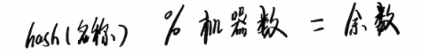 hash(名称) % 机器数 = 余数